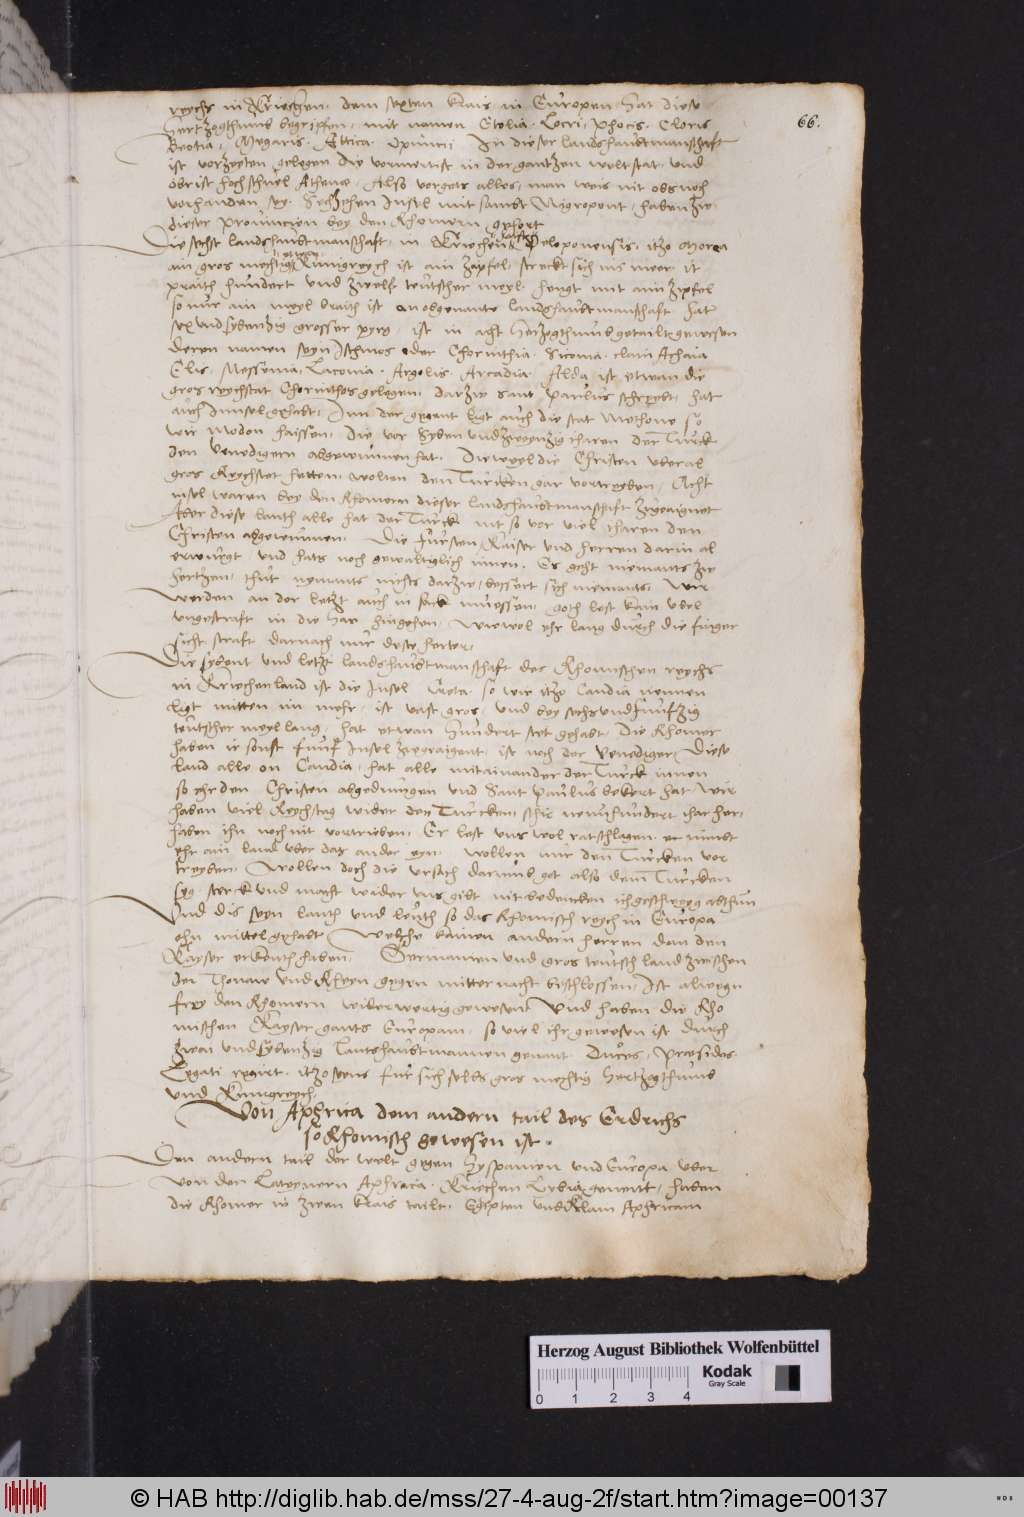 reychs in Kriechen. dem sexten krais in Europen hat diese
Hertzogthumb begriffen, mit namen Etolia. Locri, Phocis. Cloris
Beotia, Megaris. Attica. Opuncii In dieser landshaubtmanschafft
ist vorzeyten gelegen die vernuertist in der gantzen welt stat und
obrist hochschuel Athene, Also vergets alles, man weis nit obs noch
vorhanden sey. Sechzehen Insel mit sambt Nigropont, haben zw
dieser provincien bey den Rhomern gehort
66.
Die sechst landshaubtmanschafft, in Kriechen Peloponensis, itzo Morea
ain gros mechtigs etwan Kunigreych ist ain zapfel, streckt sich ins meer, it
praith hundert und zwelf teutscher meyl, hengt mit aim zipfel
so nur ain meyl braith ist an obgenante landshaubtmanschafft hat
sex und sybenzig grosser pyrg, ist in acht Herzogthumb getailt gewesen
deren namen seyn Isthmos oder Chorinthia. Siconia. clain Achaia
Elis. Messenia, Laconia. Argolis. Arcadia. Alda ist etwan die
gros reychstat Chorinthos gelegen, darzw sant Paulus schreybt, hat
auch Inn der gegent ligt auch die stat Methone so
wir Modon haissen, die vor syben und zweynzig iharen der Turck
den Venedigern abgewunnen hat. Dieweyl die Christen uberal
gros Reychsteg hetten, wolten den Turcken gar vertreyben, Acht
insel waren bey den Rhomern dieser landshaubtmanschafft zugeaignet
Aber diese lanth alle hat der Turck nit so vor viel iharen den
Christen abgewunnen. Die Fursten, Kaiser und herren darin al
erwurgt und hats noch gewaltiglich innen. Es geht niemants zw
hertzen, thut nymants nichts darzw, bessert sich niemants. Wir
werden an der letzt auch in sack muessen, goth lest kain ubel
ungestraft in die har hingehen, Wiewol ehr lang durch die finger
sicht, straft darnach nur dester herter.
Die sybent und letzt landshaubtmanschafft des Rhomischen reychs
in Kriechenland ist die Insel Creta so wir itzo Candia nennen
ligt mitten im mehr, ist vast gros, und bey sechs und funfzig
teutscher meyl lang, hat etwan hundert stet gehabt, Die Rhomer
haben ir sonst funf Insel zugeaigent, ist noch der Venediger, Diese
land alle on Candia, hat alle mitainander der Turck innen
so ehr den Christen abgedrungen und Sant Paulus bekert hat, Wir
haben viel Reychsteg wider den Turcken, schir neunhundert ihar her,
haben ihn noch nit vertrieben, Er lest uns wol ratschlagen, er nimbt
ehr ain land uber das ander eyn. Wollen nur den Turcken ver
treyben. Wollen doch die ursach darumb got also dem Turcken
syg sterck und macht wider uns gibt nit bedencken ich geschweyg abthun
Und dis seyn lanth und leuth so das Rhomisch reych in Europa
ohn mittel gehabt, Welche kainen andern herren dan den
Kayser erkenth haben, Germanien und gros teutsch land zwischen
der Thonaw und Rheyn gegen mitternacht beschlossen, Ist alwegen
frey den Rhomern widerwertig gewesen, Und haben die Rho
mischen Kayser gants Europam, so viel ihr gewesen ist durch
zwai und sybenzig lantshaubtmannen genant Duces, Praesides.
Legati regirt, itzo seins fur sich selbs gros mechtig Hertzogthumb
und Kunigreych.
Von Aphrica dem andern tail des Erdrichs
so Rhomisch gewesen ist.
Den andern tail der welt gegen Hyspanien und Europa uber
von den Lateynern Aphrica. Kriechen Lybia genent, haben
die Rhomer in zwen krais tailt, Egipten und klain Aphricam
Herzog August Bibliothek Wolfenbüttel
Kodak
Gray Scale
0 1 2 3 4
© HAB http://diglib.hab.de/mss/27-4-aug-2f/start.htm?image=00137